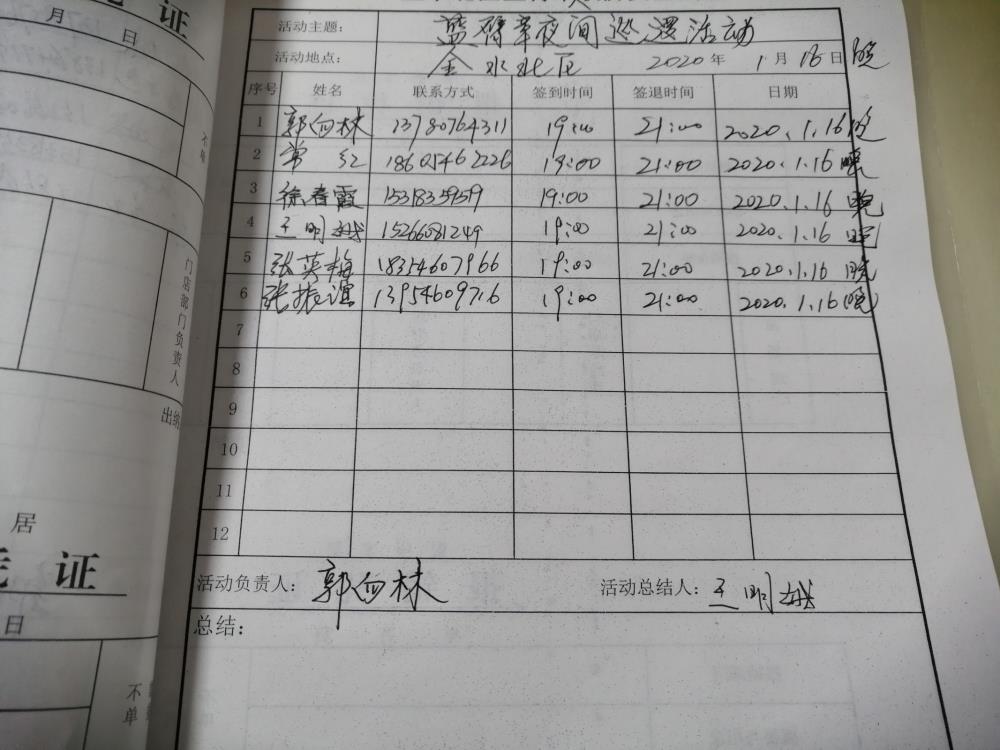 证
日
月
活动主题： 蓝臂章夜间巡逻活动
活动地点： 金水北区 2020年 1月16日晚
序号 姓名 联系方式 签到时间 签退时间 日期
1 郭向林 13780764311 19:00 21:00 2020.1.16晚
2 常红 18605462226 19:00 21:00 2020.1.16晚
3 徐春霞 1531835959 19:00 21:00 2020.1.16晚
4 王明娥 15266081249 19:00 21:00 2020.1.16晚
5 张英梅 18354607966 19:00 21:00 2020.1.16晚
6 张振谊 13954609716 19:00 21:00 2020.1.16(晚)
7
8
9
10
11
12
活动负责人： 郭向林 活动总结人： 王明娥
总结：
门店部门负责人
出纳
居
证
日
不
单